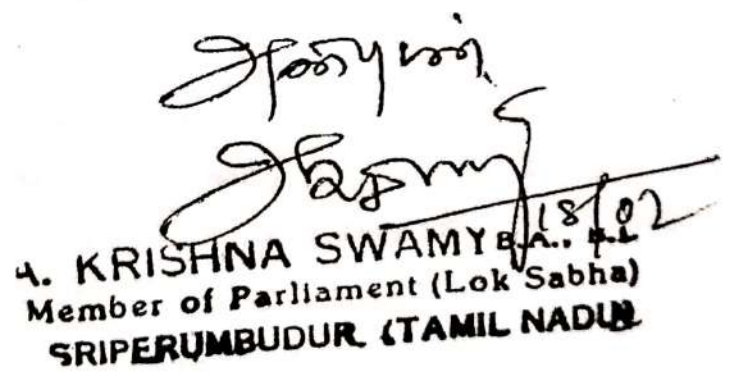 அன்புடன்
18/02
A. KRISHNA SWAMY B.A., B.L
Member of Parliament (Lok Sabha)
SRIPERUMBUDUR (TAMIL NADU)